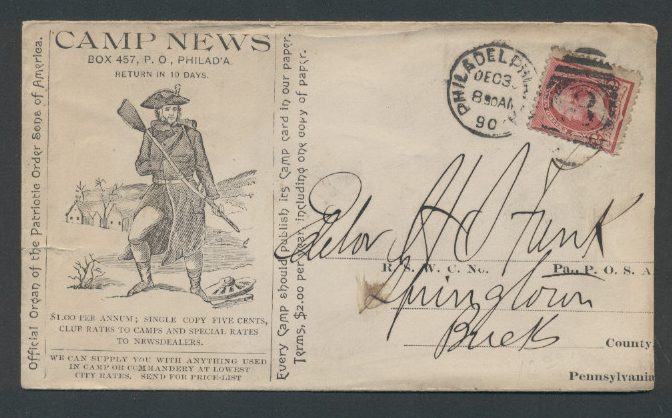 Official Organ of the Patriotic Order Sons of America.
CAMP NEWS
BOX 457, P. O., PHILAD'A.
RETURN IN 10 DAYS.
$1.00 PER ANNUM; SINGLE COPY FIVE CENTS,
CLUB RATES TO CAMPS AND SPECIAL RATES
TO NEWSDEALERS.
WE CAN SUPPLY YOU WITH ANYTHING USED
IN CAMP OR COMMANDERY AT LOWEST
CITY RATES. SEND FOR PRICE-LIST
Every Camp should publish its Camp card in our paper.
Terms, $2.00 per year, including one copy of paper.
PHILADELPHIA
DEC 3
8 30 AM
90
H S Funk
R. S. W. C. No. Pa., P. O. S. A
Springtown
Bucks County
Pennsylvania